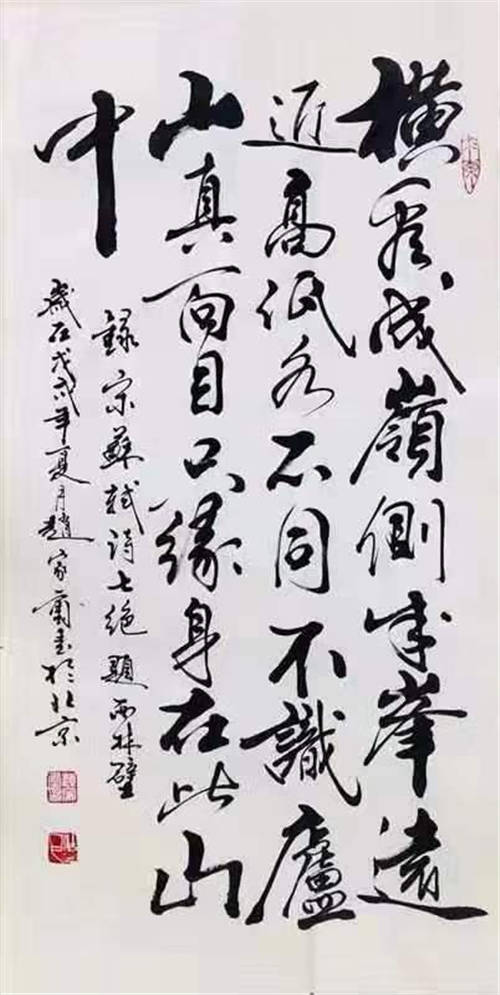 橫看成嶺側成峯遠
近高低各不同不識廬
山真面目只緣身在此山
中
錄宋蘇軾詩七絕題西林壁
歲在戊戌年夏月趙家書於北京